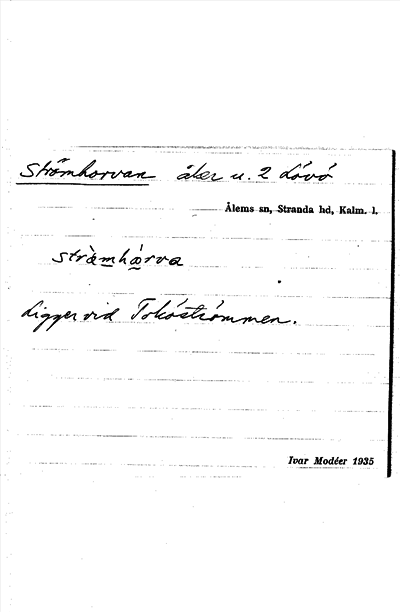 Strömhorvan åker u. 2 Lövö
Ålems sn, Stranda hd, Kalm. l.
stràmhårva
Ligger vid Toköströmmen.
Ivar Modéer 1935